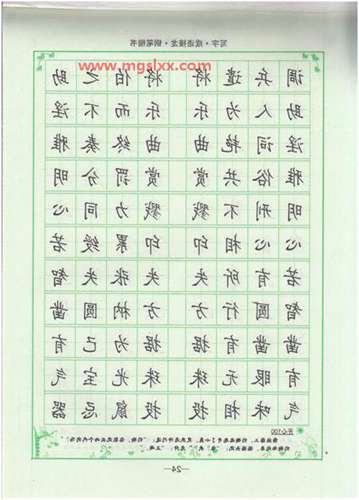 www.mgslxx.com
写字·成语接龙·钢笔楷书
调兵遣将 将伯之助
助人为乐 乐而不淫
淫词艳曲 曲终奏雅
雅俗共赏 赏罚分明
明刑不戮 戮力同心
心心相印 印累绶若
若有所失 失张失智
智圆行方 方枘圆凿
凿凿有据 据为己有
有眼无珠 珠光宝气
气味相投 投鼠忌器
开心100
—24—